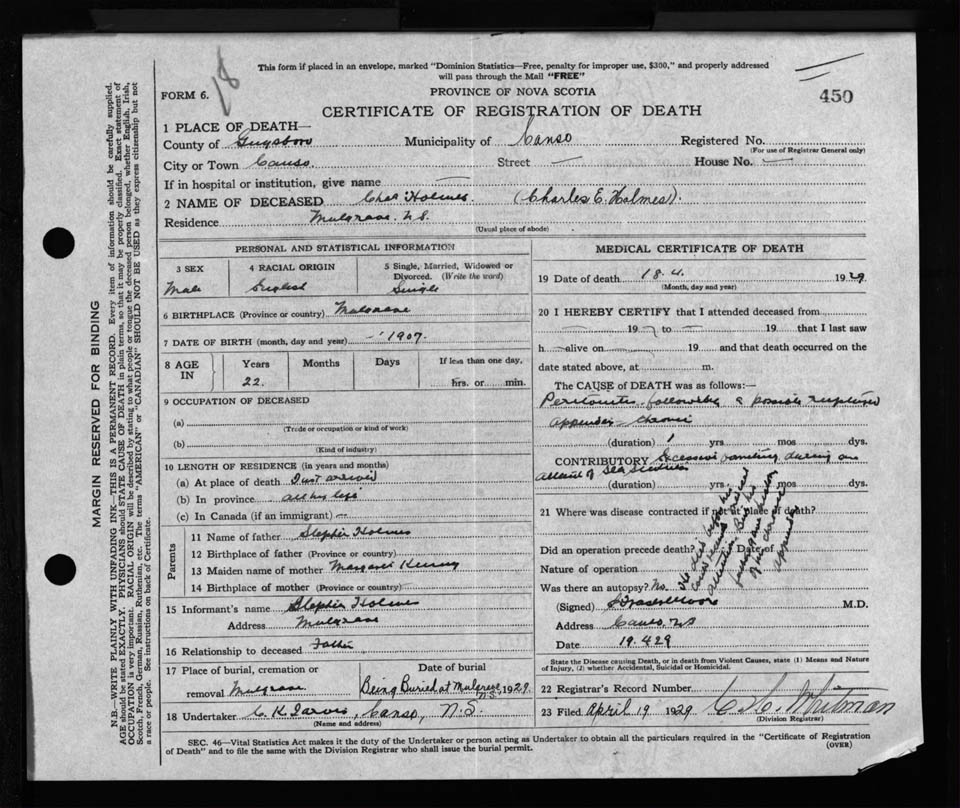 18
This form if placed in an envelope, marked "Dominion Statistics—Free, penalty for improper use, $300," and properly addressed
will pass through the Mail "FREE"
FORM 6.
PROVINCE OF NOVA SCOTIA
450
CERTIFICATE OF REGISTRATION OF DEATH
1 PLACE OF DEATH—
County of Guysboro Municipality of Canso Registered No.
(For use of Registrar General only)
City or Town Canso. Street — House No. —
If in hospital or institution, give name —
2 NAME OF DECEASED Chas Holmes. (Charles E. Holmes).
Residence Mulgrave. N.S.
(Usual place of abode)
PERSONAL AND STATISTICAL INFORMATION
3 SEX
Male
4 RACIAL ORIGIN
English
5 Single, Married, Widowed or
Divorced. (Write the word)
Single
6 BIRTHPLACE (Province or country) Mulgrave
7 DATE OF BIRTH (month, day and year) 1907.
8 AGE IN
Years
22.
Months
Days
If less than one day,
hrs. or min.
9 OCCUPATION OF DECEASED
(a)
(Trade or occupation or kind of work)
(b)
(Kind of industry)
10 LENGTH OF RESIDENCE (in years and months)
(a) At place of death Just arrived
(b) In province all his life
(c) In Canada (if an immigrant)
Parents
11 Name of father Stephen Holmes
12 Birthplace of father (Province or country)
13 Maiden name of mother Margaret
14 Birthplace of mother (Province or country)
15 Informant's name Stephen Holmes
Address Mulgrave
16 Relationship to deceased Father
17 Place of burial, cremation or
removal Mulgrave
Date of burial
Being Buried at Mulgrave N.S. 1929.
18 Undertaker C. K. Jarvis, Canso, N.S.
(Name and address)
MEDICAL CERTIFICATE OF DEATH
19 Date of death 18.4. 1929.
(Month, day and year)
20 I HEREBY CERTIFY that I attended deceased from
19 to 19 that I last saw
h alive on 19 and that death occurred on the
date stated above, at m.
The CAUSE of DEATH was as follows:—
Peritonitis following a possible ruptured
appendix - chronic
(duration) 1 yrs. mos dys.
CONTRIBUTORY Excessive vomiting during an
attack of Sea Sickness
(duration) yrs. mos. dys.
21 Where was disease contracted if not at place of death?
Did an operation precede death? Date of
Nature of operation
Was there an autopsy? No.
He died before he
could secure medical
attention. But his
chronic
appendix
(Signed) M.D.
Address Canso, N.S
Date 19.4.29
State the Disease causing Death, or in death from Violent Causes, state (1) Means and Nature
of Injury, (2) whether Accidental, Suicidal or Homicidal.
22 Registrar's Record Number
23 Filed April 19 1929 C. H. Whitman
(Division Registrar)
SEC. 46—Vital Statistics Act makes it the duty of the Undertaker or person acting as Undertaker to obtain all the particulars required in the "Certificate of Registration
of Death" and to file the same with the Division Registrar who shall issue the burial permit.
(OVER)
MARGIN RESERVED FOR BINDING
N.B.—WRITE PLAINLY WITH UNFADING INK—THIS IS A PERMANENT RECORD. Every item of information should be carefully supplied.
AGE should be stated EXACTLY. PHYSICIANS should STATE CAUSE OF DEATH in plain terms, so that it may be properly classified. Exact statement of
OCCUPATION is very important. RACIAL ORIGIN will be described by stating to what people or tongue the deceased person belonged, whether English, Irish,
Scotch, French, German, Russian, Ruthenian, etc. The terms "AMERICAN" or "CANADIAN" SHOULD NOT BE USED as they express citizenship but not
a race or people. See instructions on back of Certificate.